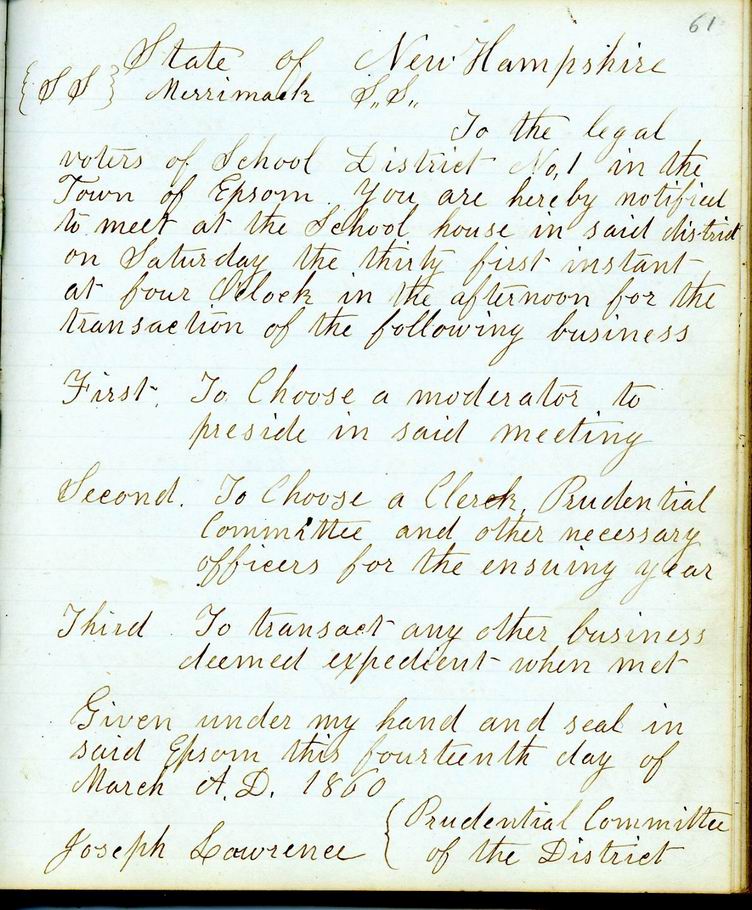 61
State of New Hampshire
{SS} Merrimack S,,S,,
To the legal
voters of School District No,1 in the
Town of Epsom. You are hereby notified
to meet at the School house in said district
on Saturday the thirty first instant
at four Oclock in the afternoon for the
transaction of the following business
First. To Choose a moderator to
preside in said meeting
Second. To Choose a Clerk, Prudential
Committee and other necessary
officers for the ensuing year
Third To transact any other business
deemed expedient when met
Given under my hand and seal in
said Epsom this fourteenth day of
March A.D. 1860
Joseph Lawrence { Prudential Committee
of the District